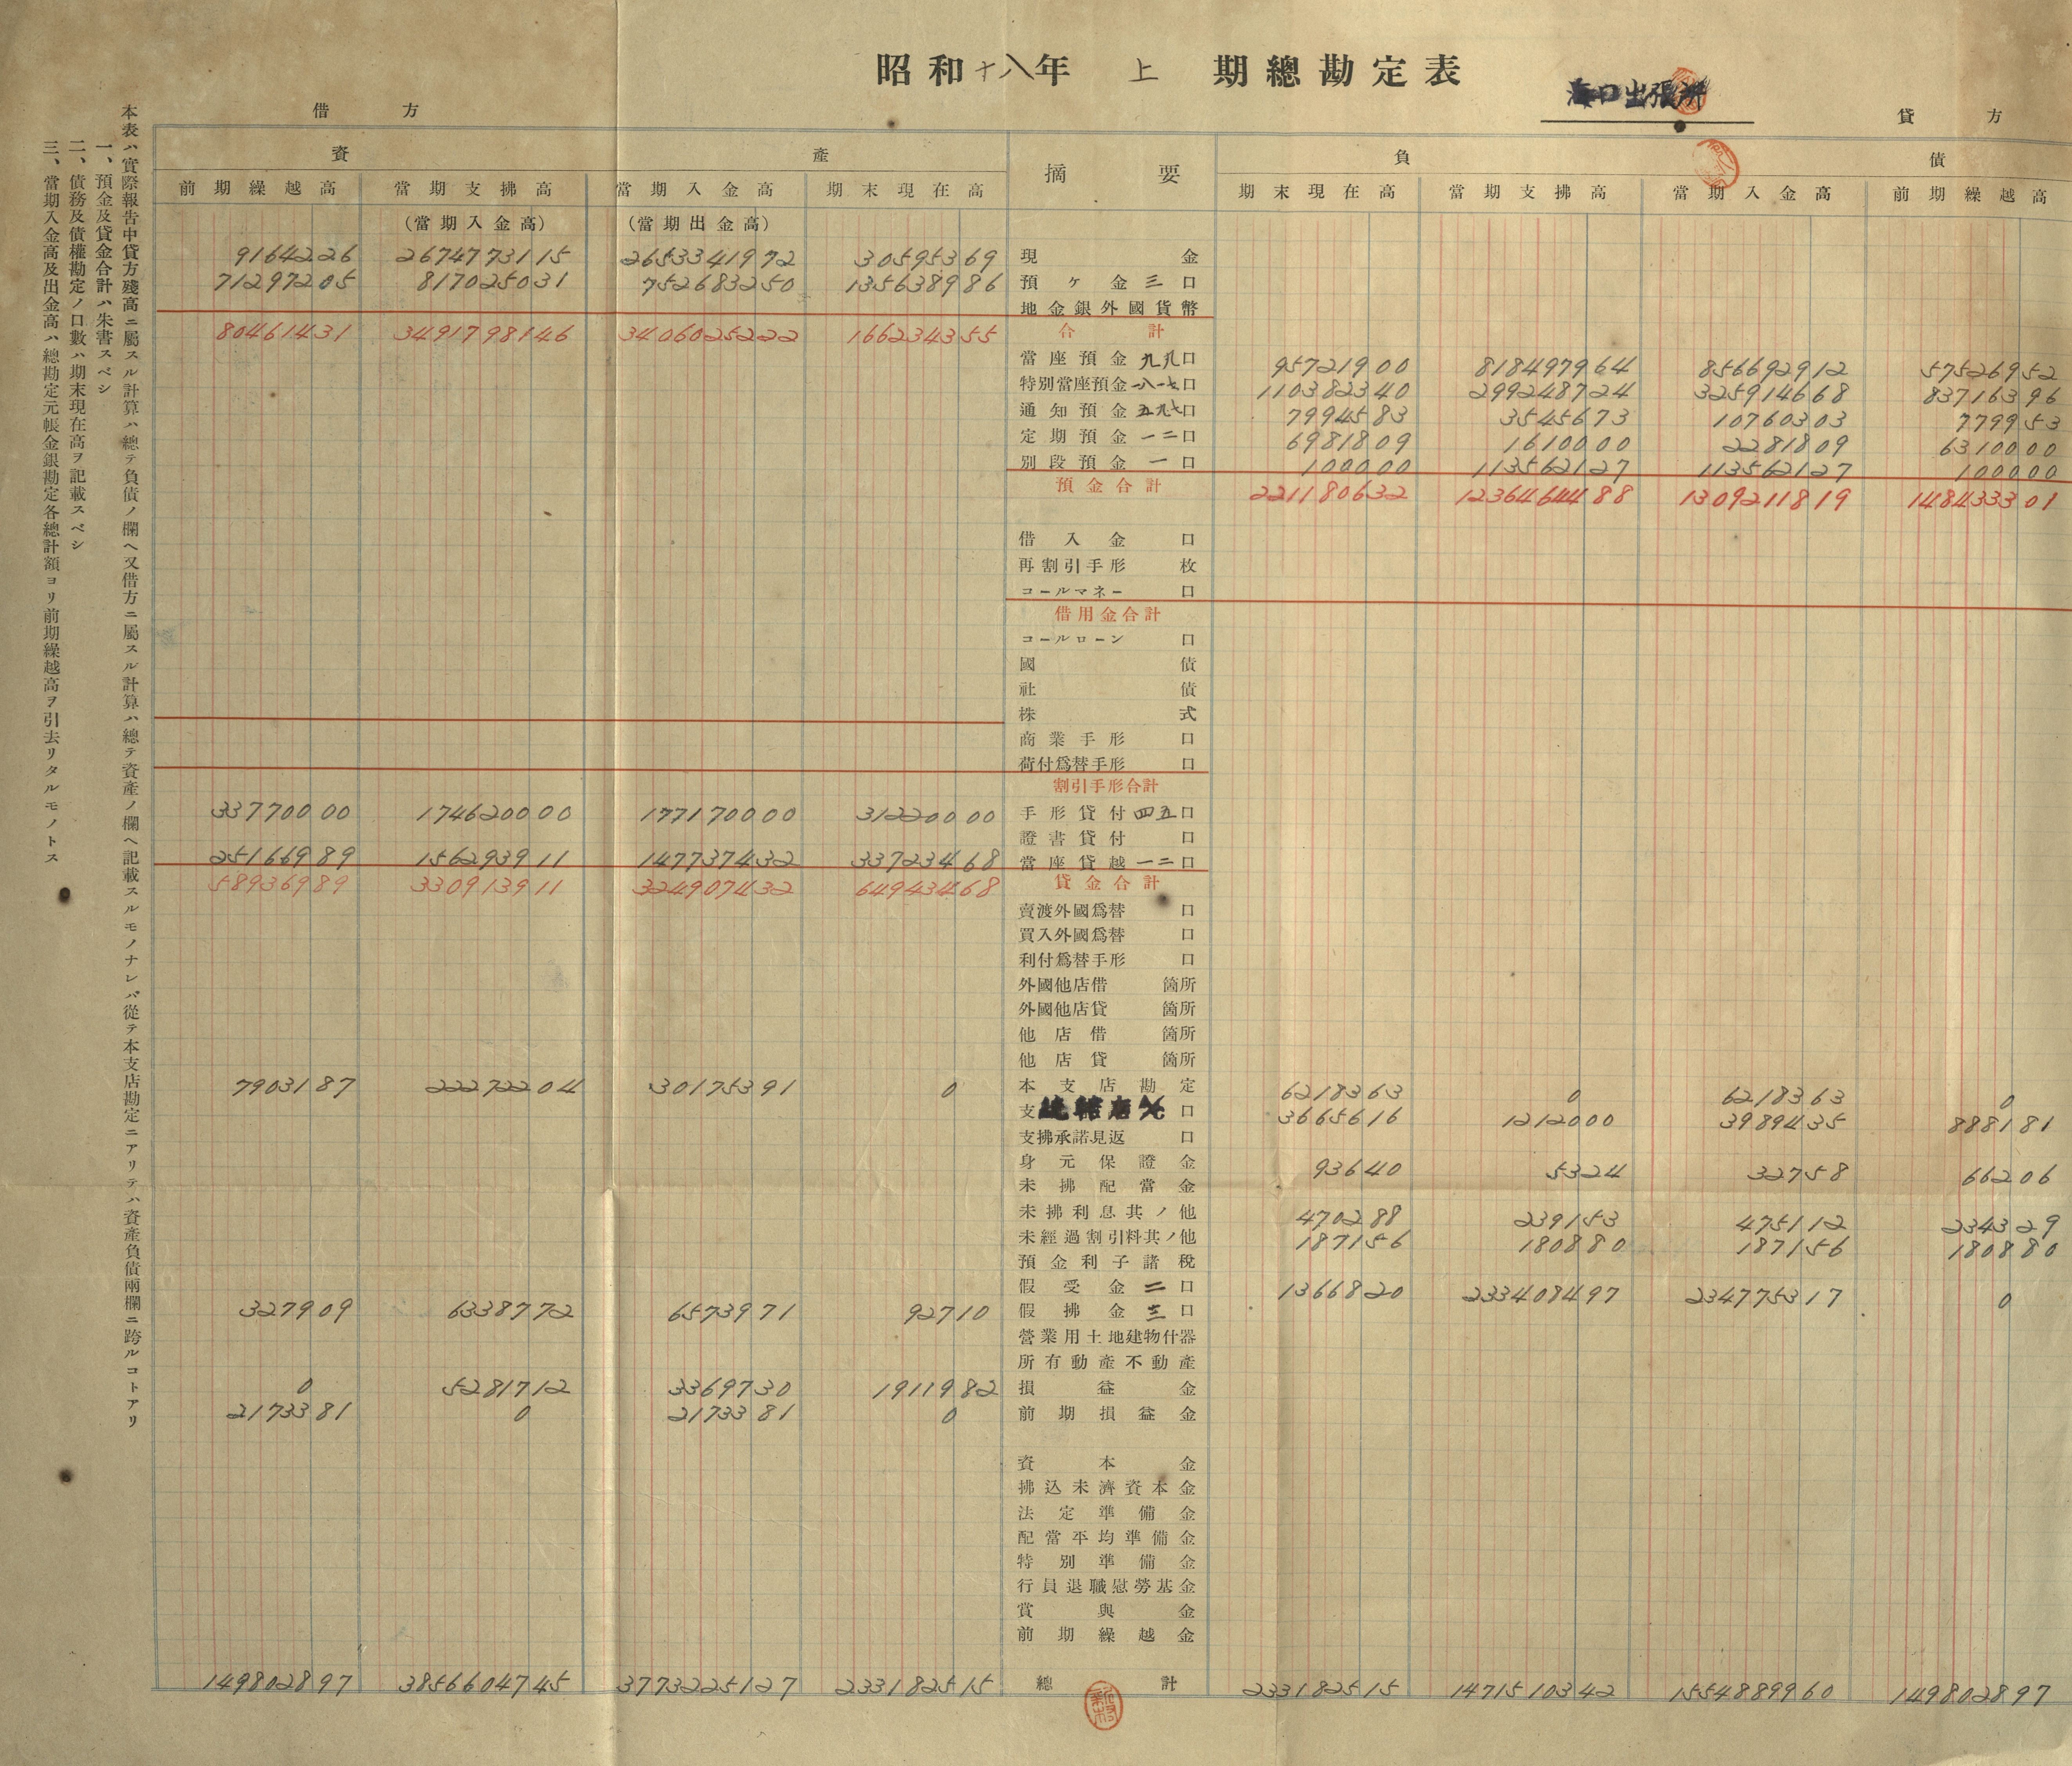 昭和十八年 上 期總勘定表
海口出張所
借方 貸方
資產 摘要 負債
前期繰越高 當期支拂高 當期入金高 期末現在高 期末現在高 當期支拂高 當期入金高 前期繰越高
(當期入金高) (當期出金高)
9164226 2674773115 2653341972 30595369 現金
71297205 817025031 752683250 135638986 預ケ金三口
地金銀外國貨幣
80461431 3491798146 3406025222 166234355 合計
當座預金九九口 95721900 818497964 856692912 57526952
特別當座預金一八一七口 110382340 299248724 325914668 83716396
通知預金五九七口 7994583 3545673 10760303 779953
定期預金一二口 6981809 1610000 2281809 6310000
別段預金一口 100000 113562127 113562127 100000
預金合計 221180632 1236464488 1309211819 148433301
借入金口
再割引手形枚
コールマネー口
借用金合計
コールローン口
國債
社債
株式
商業手形口
荷付爲替手形口
割引手形合計
33770000 174620000 177170000 31220000 手形貸付四五口
證書貸付口
25166989 156293911 147737432 33723468 當座貸越一二口
58936989 330913911 324907432 64943468 貸金合計
賣渡外國爲替口
買入外國爲替口
利付爲替手形口
外國他店借箇所
外國他店貸箇所
他店借箇所
他店貸箇所
7903187 22272204 30175391 0 本支店勘定 6218363 0 6218363 0
支統轄店口 3665616 1212000 3989435 888181
支拂承諾見返口
身元保證金 93640 5324 32758 66206
未拂配當金
未拂利息其ノ他 470288 239153 475112 234329
未經過割引料其ノ他 187156 180880 187156 180880
預金利子諸稅
假受金二口 1366820 233408497 234775317 0
327909 6338772 6573971 92710 假拂金三口
營業用土地建物什器
所有動產不動產
0 5281712 3369730 1911982 損益金
2173381 0 2173381 0 前期損益金
資本金
拂込未濟資本金
法定準備金
配當平均準備金
特別準備金
行員退職慰勞基金
賞與金
前期繰越金
149802897 3856604745 3773225127 233182515 總計 233182515 1471510342 1554889960 149802897
本表ハ實際報告中貸方殘高ニ屬スル計算ハ總テ負債ノ欄ヘ又借方ニ屬スル計算ハ總テ資產ノ欄ヘ記載スルモノナレバ從テ本支店勘定ニアリテハ資產負債兩欄ニ跨ルコトアリ
一、預金及貸金合計ハ朱書スベシ
二、債務及債權勘定ノ口數ハ期末現在高ヲ記載スベシ
三、當期入金高及出金高ハ總勘定元帳金銀勘定各總計額ヨリ前期繰越高ヲ引去リタルモノトス